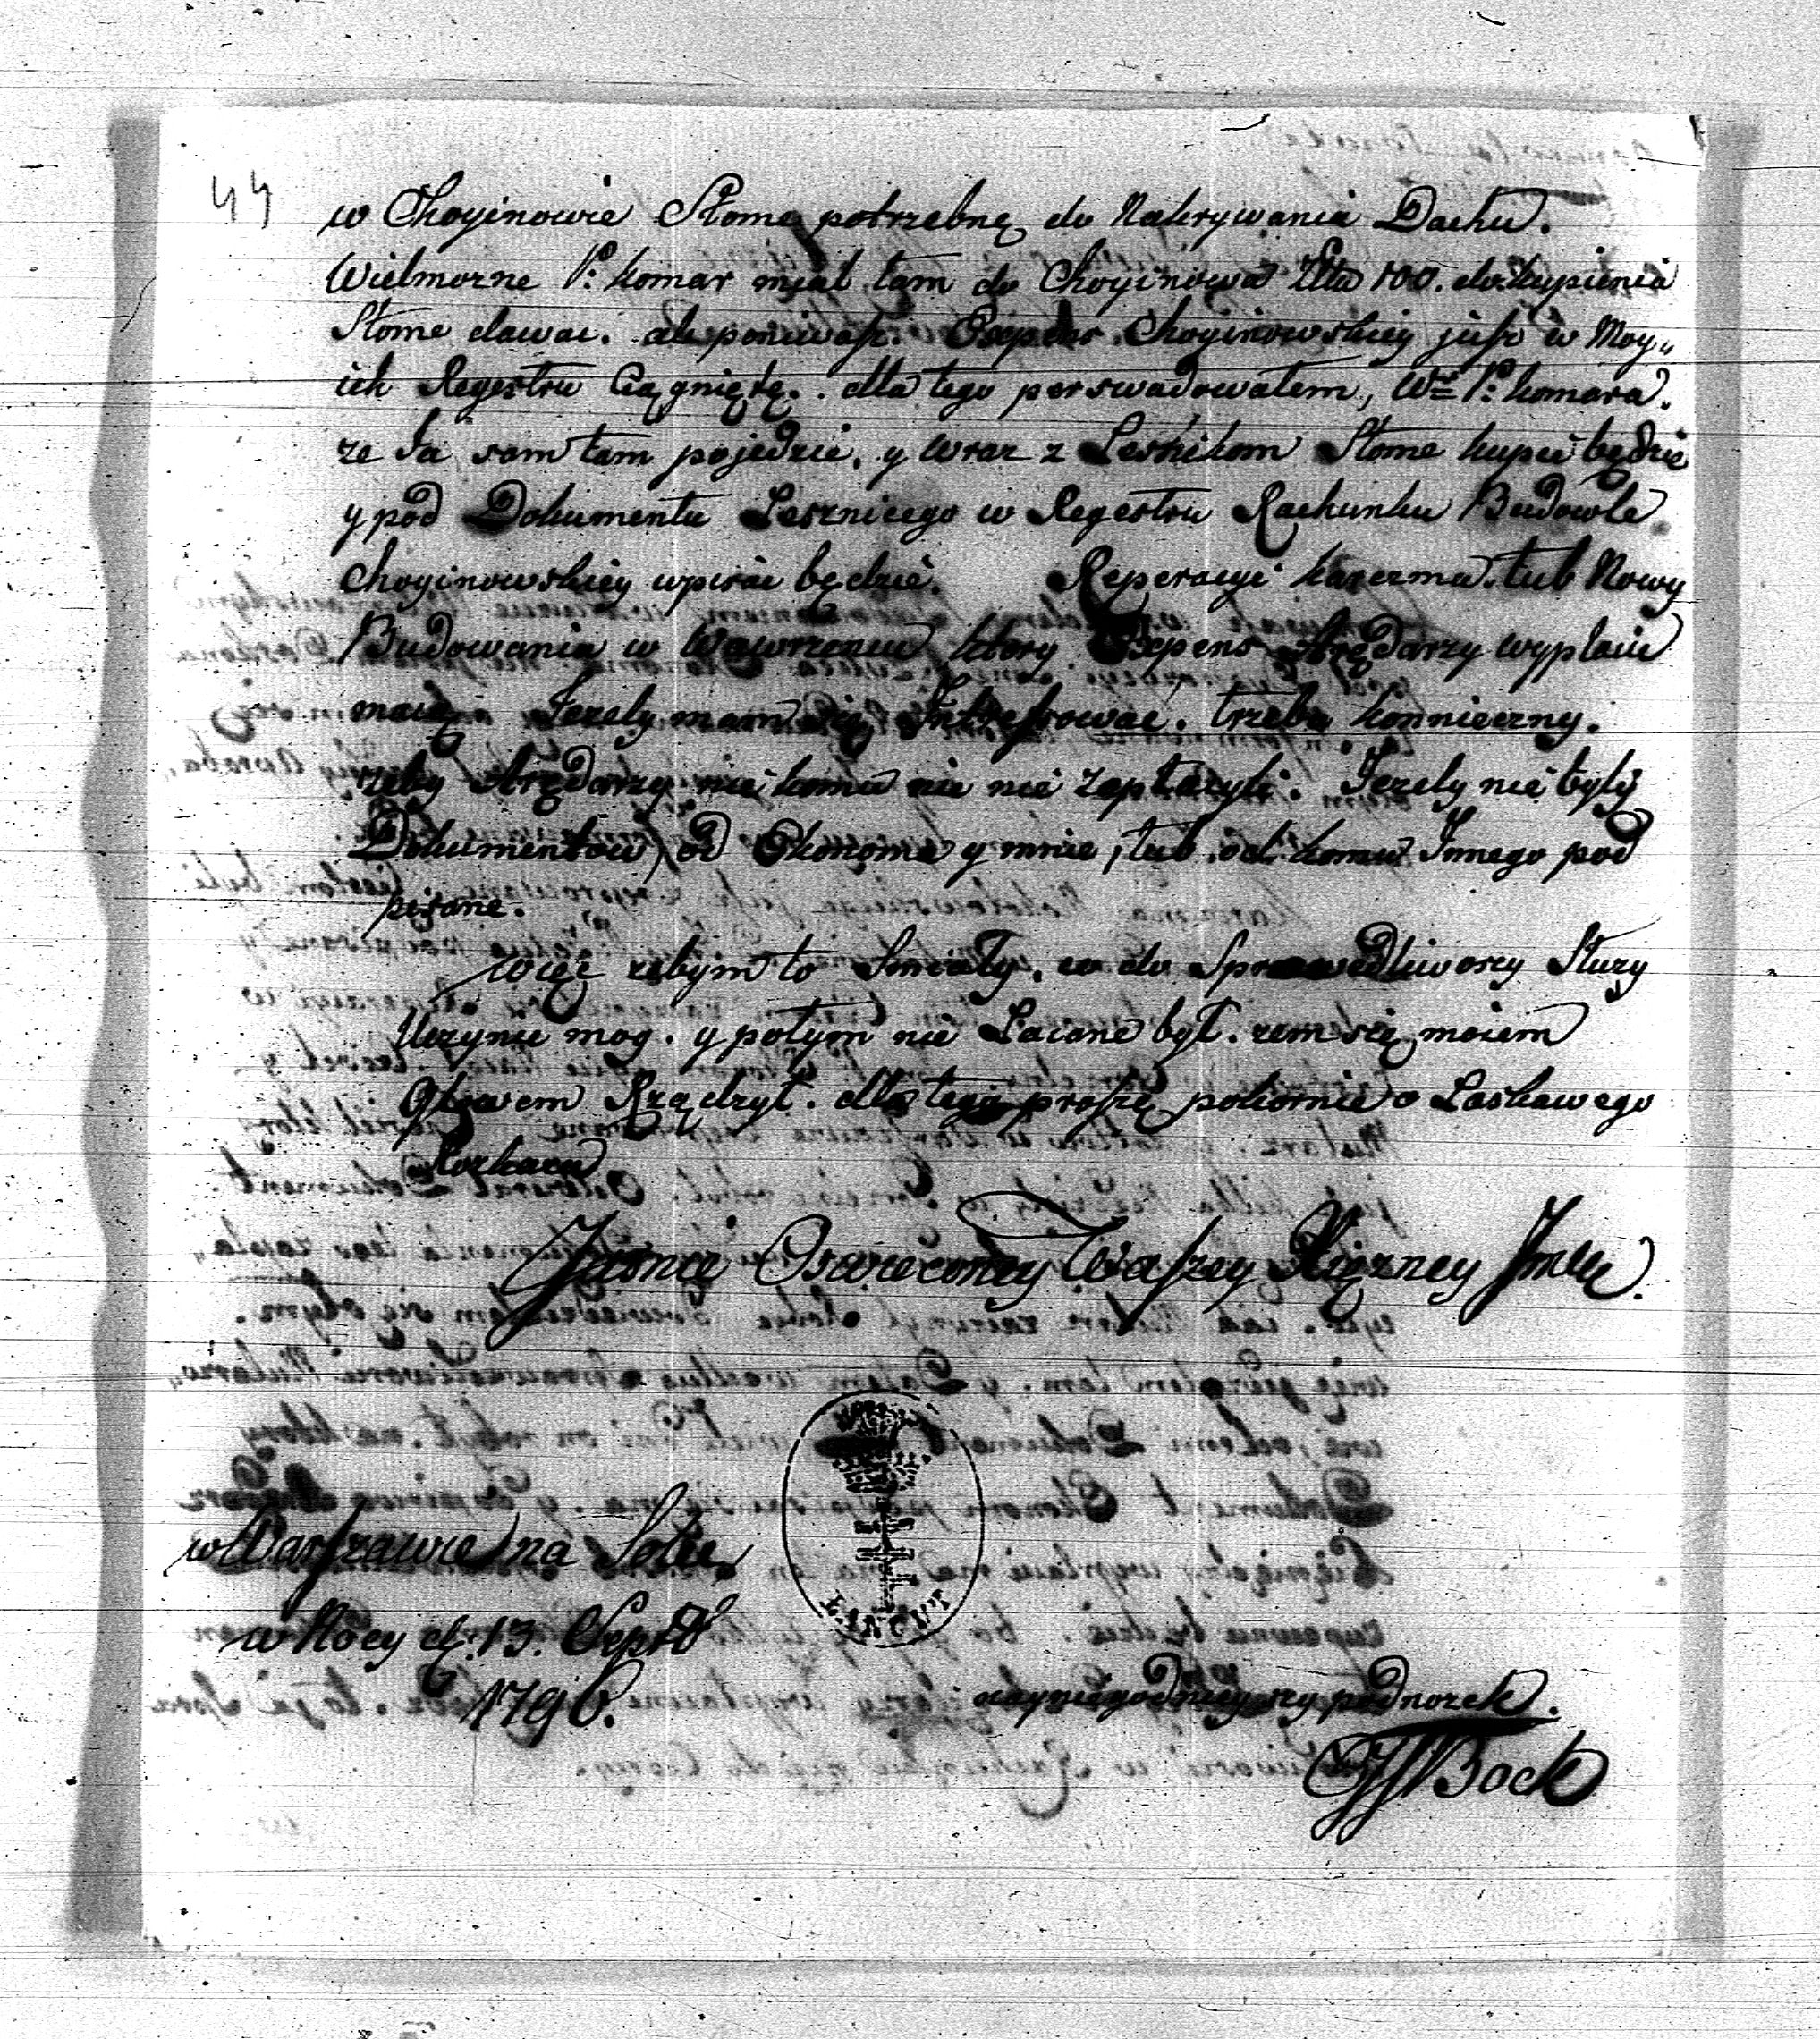 44
w Choyinowie Słome potrzebnę do Nakrywania Dachu.
Wielmozne P: Komar miał tam do Choyinowa Złłu 100. do kupienia
Słome dawac. ale poniwasz Expens. Choyinowskiey jusz w Moy„
ich Regestru Ciągnięte. dlatego perswadowałem, Wº P: Komara.
ze Ja sam tam pojedzie, y wraz z Lesnikom Słome kupić będzie
y pod Dokumentu Lesznicego w Regestru Rachunku Budowle
Choyinowskiey wpisac będzie. Reperacyi Karczma. lub Nowy
Budowania w Wawrzonu ktory Expens Arędarzy wypłacic
maią Jezely mam się Interesowac. trzeba konnieczny.
zeby Arędarzy nie komu nie nie zapłaczyli. Jezely nie byly
Dokumentow, od Ekonoma y mnie, lub od komu Innego pod
pisane.
Więc zebym to Smiały, w do Sprawedliwoscy Słuzy
Uczynic mog. y potym nie Laiane był. zem się moiem
Głowem Rządzył. dla tego proszę pokornie o Laskawego
Rozkazu
Jasnie Oswieconey Waszey Xięzney Jmci.
w Warszawie na Solcu
w Nocy d: 13. Septbr
1796.
nayniegodnieyszy podnozek.
JJBock